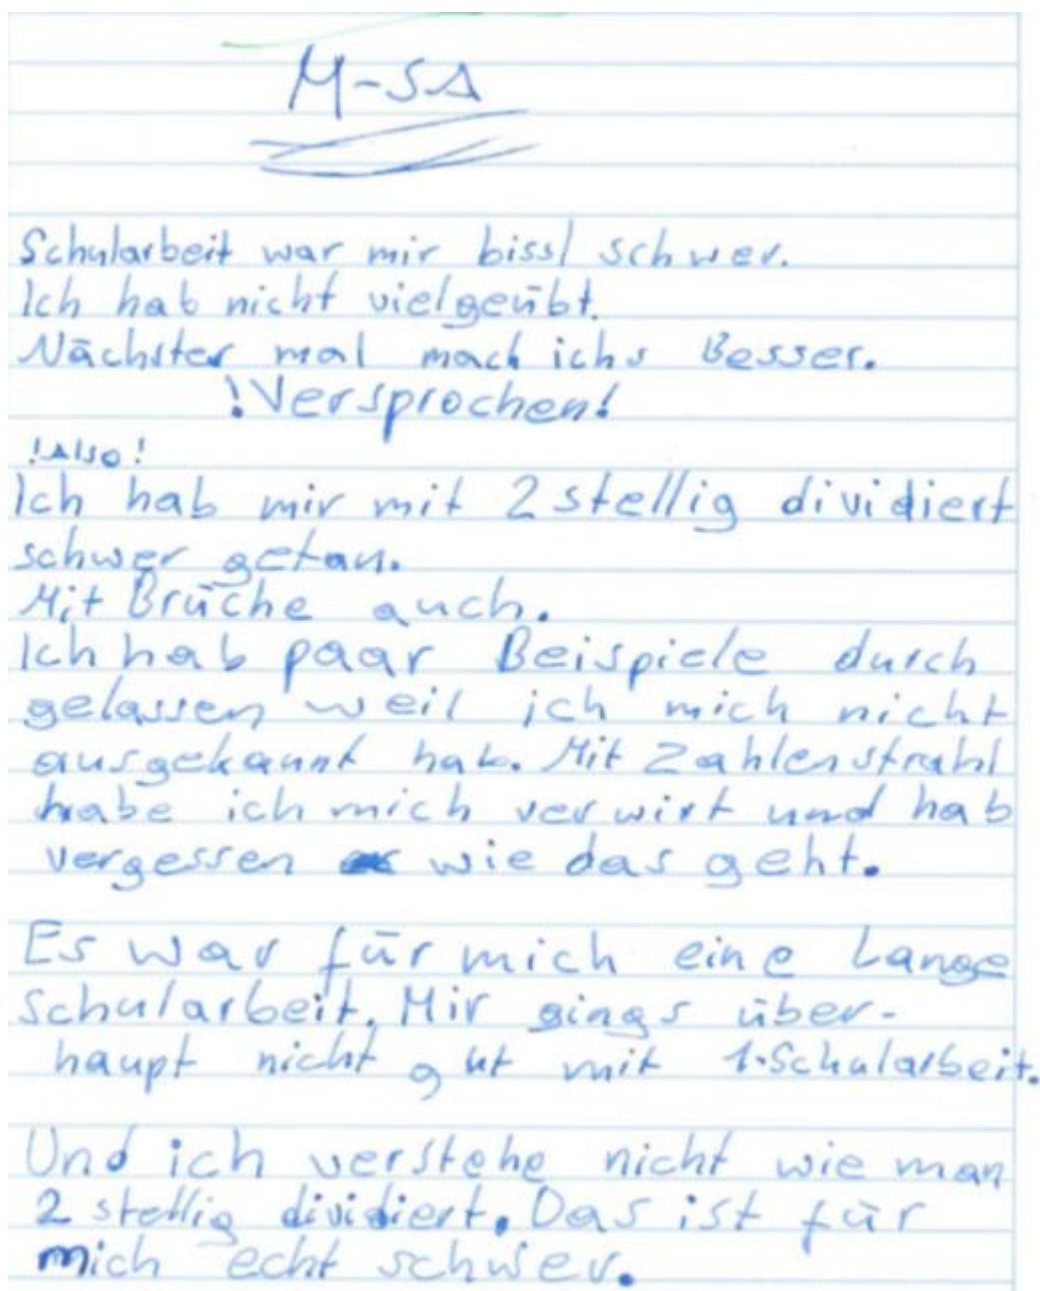 M-SA
Schularbeit war mir bissl schwer.
Ich hab nicht vielgeübt.
Nächster mal mach ichs Besser.
!Versprochen!
!Also!
Ich hab mir mit 2 stellig dividiert
schwer getan.
Mit Brüche auch.
Ich hab paar Beispiele durch
gelassen weil ich mich nicht
ausgekannt hab. Mit Zahlenstrahl
habe ich mich verwirt und hab
vergessen wie das geht.
Es war für mich eine Lange
Schularbeit. Mir gings über-
haupt nicht gut mit 1. Schularbeit.
Und ich verstehe nicht wie man
2 stellig dividiert. Das ist für
mich echt schwer.